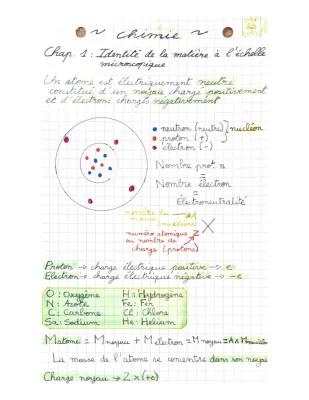 ~ chimie ~
Chap. 1 : Identité de la matière à l'échelle
microscopique
Un atome est électriquement neutre
constitué d'un noyau chargé positivement
et d'électrons chargés négativement
neutron (neutre) } nucléon
proton (+)
électron (-)
Nombre prot. n
=
Nombre électron
=
Électroneutralité
nombre de
masse A
(nucléons)
X
numéro atomique Z
ou nombre de
charge (protons)
Proton → charge électrique positive → e
Electron → charge électrique négative → -e
O : Oxygène H : Hydrogène
N : Azote Fe : Fer
C : Carbone Cl : Chlore
Sa : Sodium He : Helium
M atome = M noyau + M électron = M noyau = A x M nucléon
La masse de l'atome se concentre dans son noyau
Charge noyau → Z x (+e)